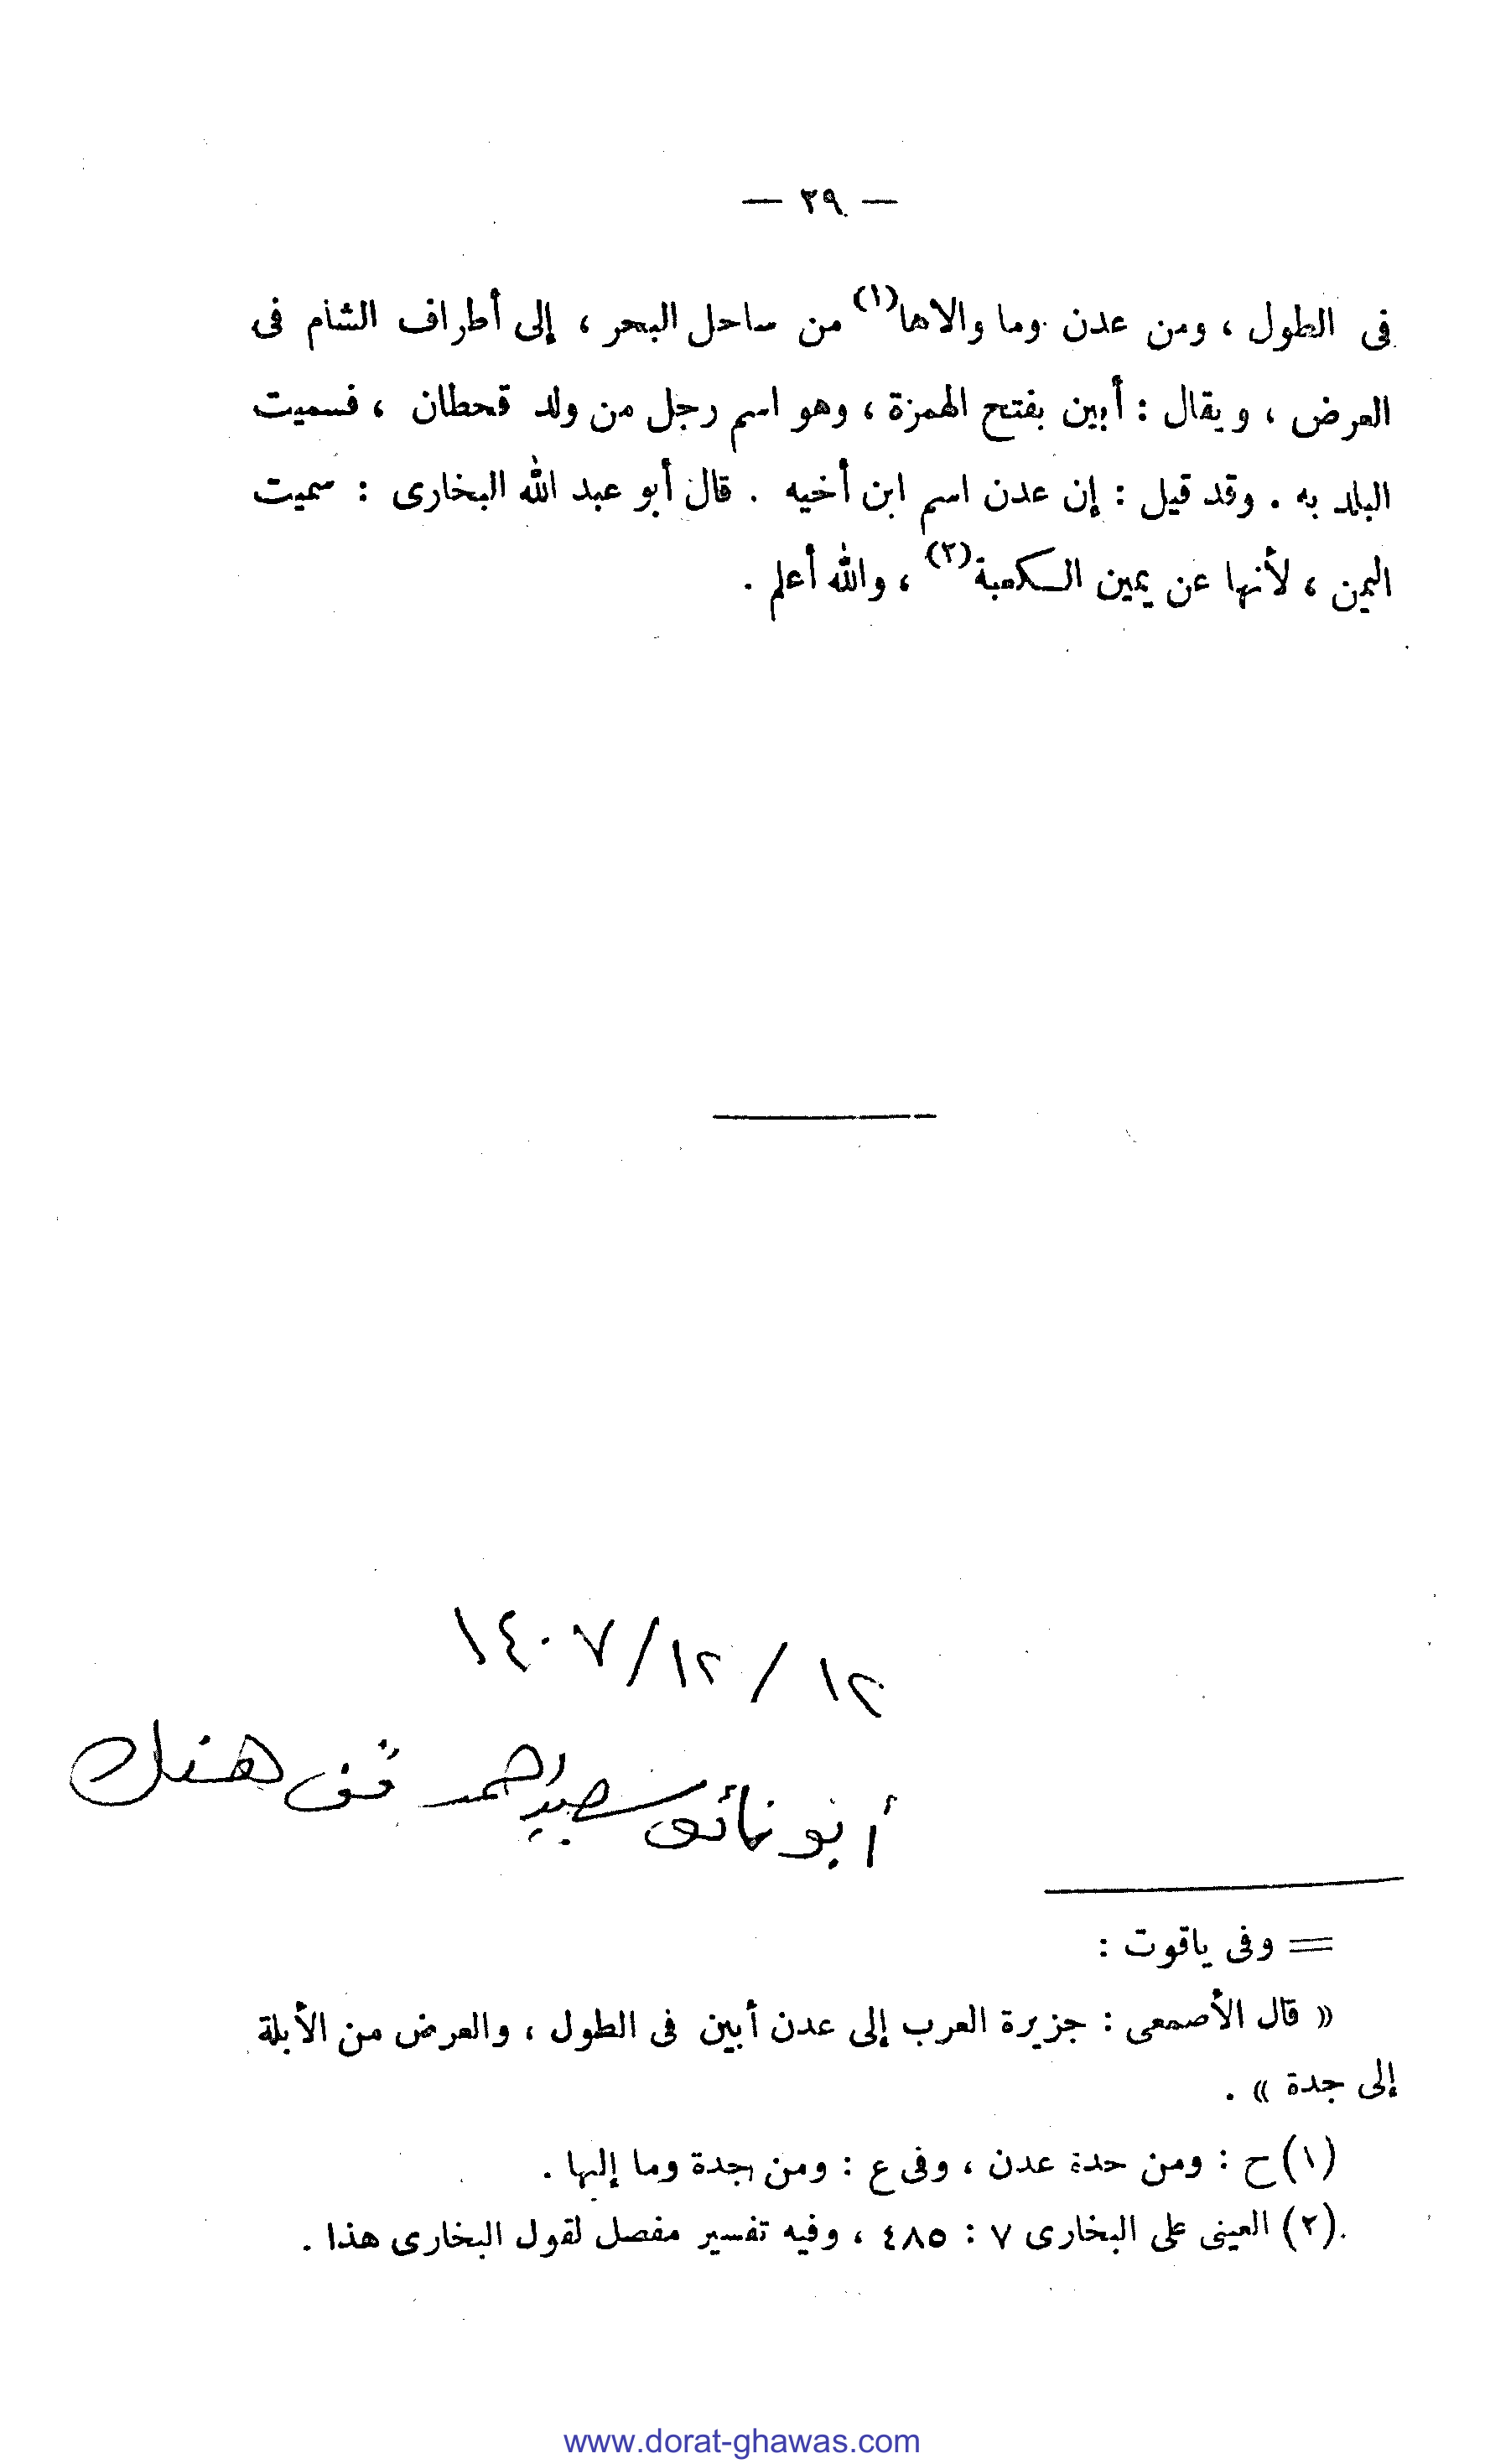 — ٣٩ —
فى الطول ، ومن عدن وما والاها(١) من ساحل البحر ، إلى أطراف الشام فى
العرض ، ويقال : أبين بفتح الهمزة ، وهو اسم رجل من ولد قحطان ، فسميت
البلد به . وقد قيل : إن عدن اسم ابن أخيه . قال أبو عبد الله البخارى : سميت
اليمن ، لأنها عن يمين الكعبة(٢) ، والله أعلم .
١٤٠٧/١٢/١٢
أبو فائق سعيد احمد
= وفى ياقوت :
« قال الأصمعى : جزيرة العرب إلى عدن أبين فى الطول ، والعرض من الأبلة
إلى جدة » .
(١) ح : ومن حدة عدن ، وفى ع : ومن جدة وما إليها .
(٢) العينى على البخارى ٧ : ٤٨٥ ، وفيه تفسير مفصل لقول البخارى هذا .
www.dorat-ghawas.com